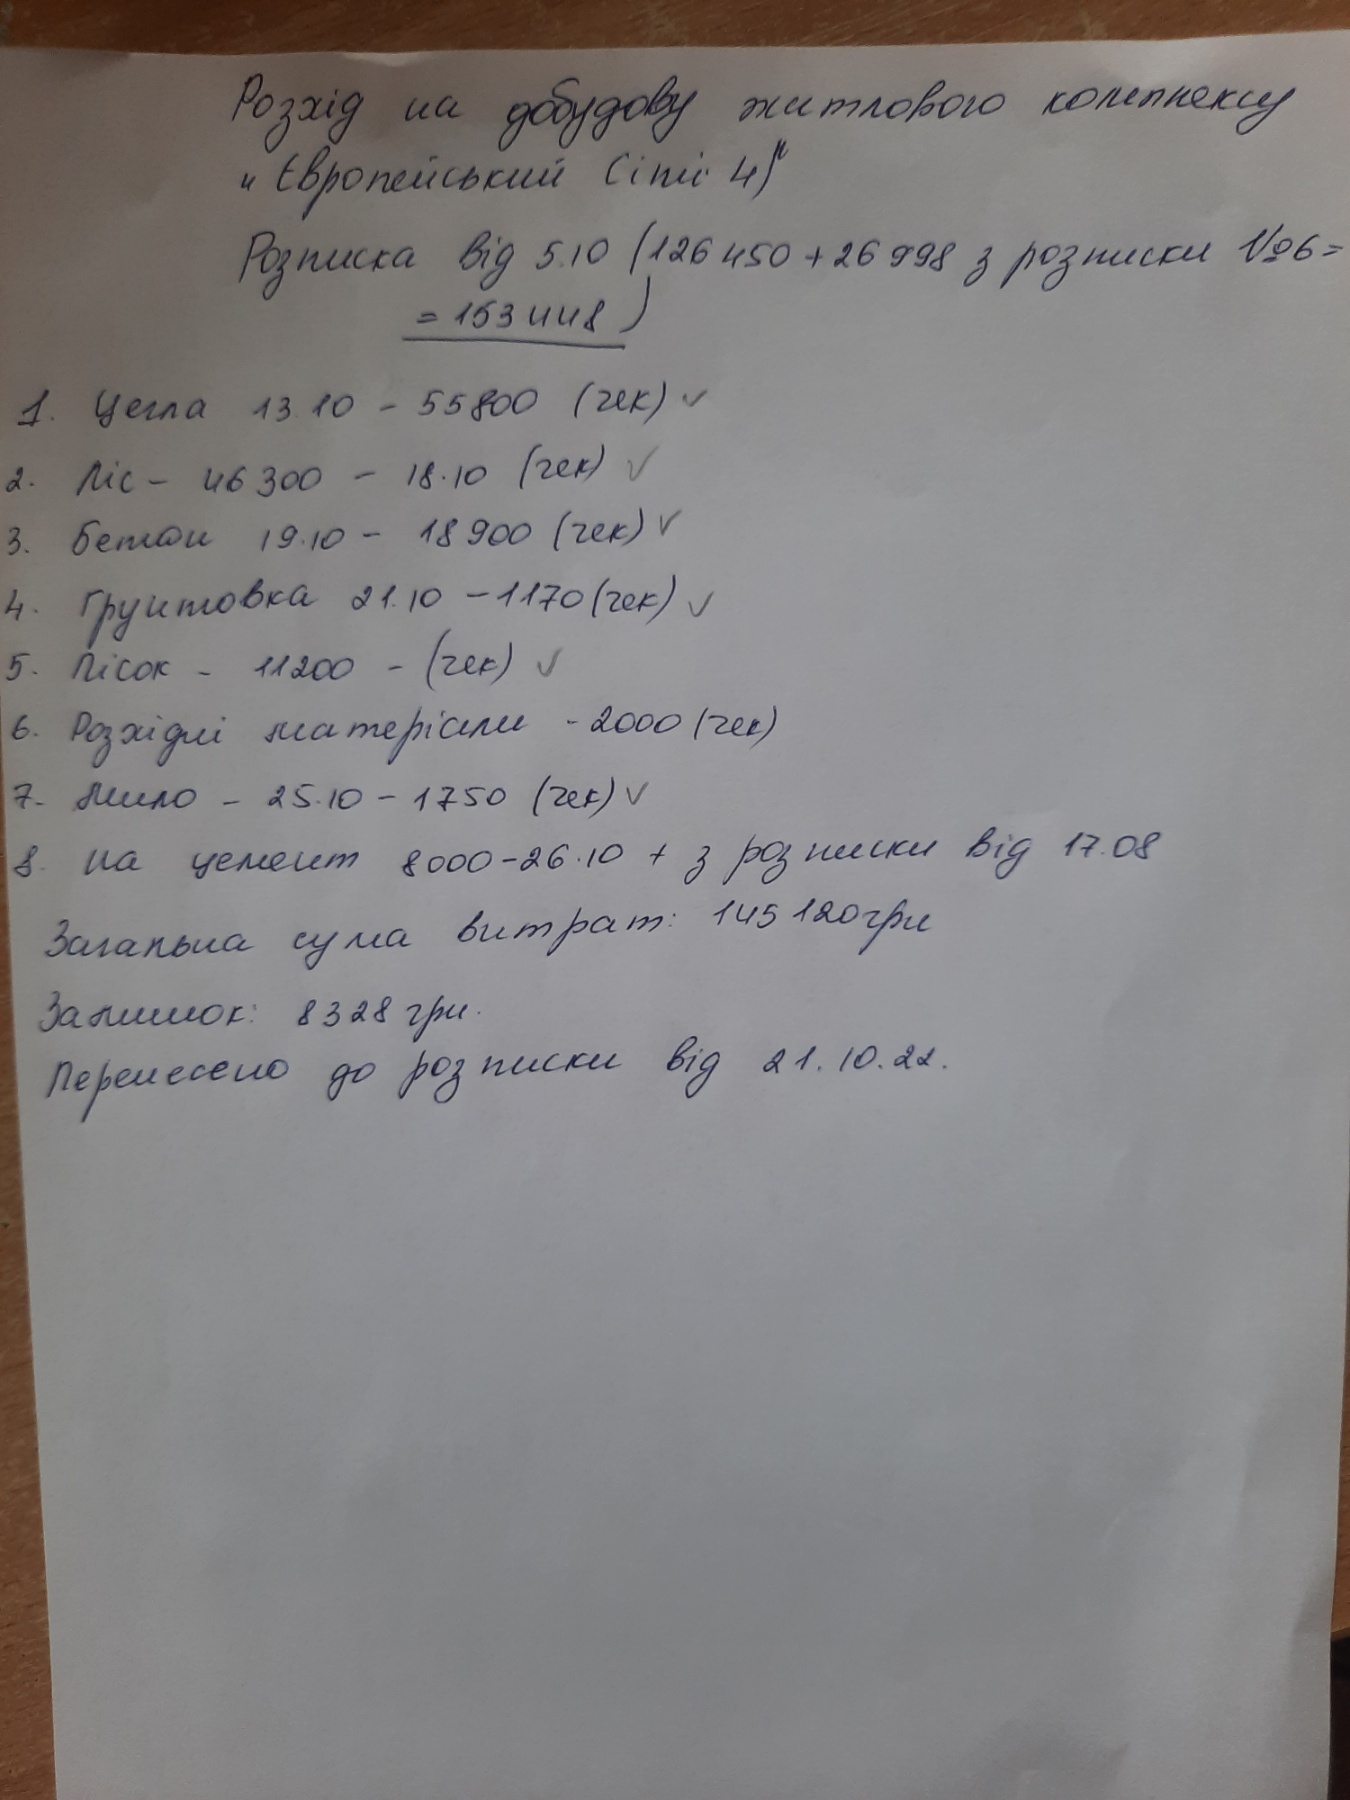 Розхід на добудову житлового комплексу
"Європейський Сіті 4)"
Розписка від 5.10 (126 450 + 26 998 з розписки №6 =
= 153 448)
1. Цегла 13.10 - 55800 (чек) ✓
2. Ліс - 46 300 - 18.10 (чек) ✓
3. Бетон 19.10 - 18 900 (чек) ✓
4. Грунтовка 21.10 - 1170 (чек) ✓
5. Пісок - 11200 - (чек) ✓
6. Розхідні матеріали - 2000 (чек)
7. Мило - 25.10 - 1750 (чек) ✓
8. На цемент 8000 - 26.10 + з розписки від 17.08
Загальна сума витрат: 145 120 грн
Залишок: 8328 грн.
Перенесено до розписки від 21.10.22.